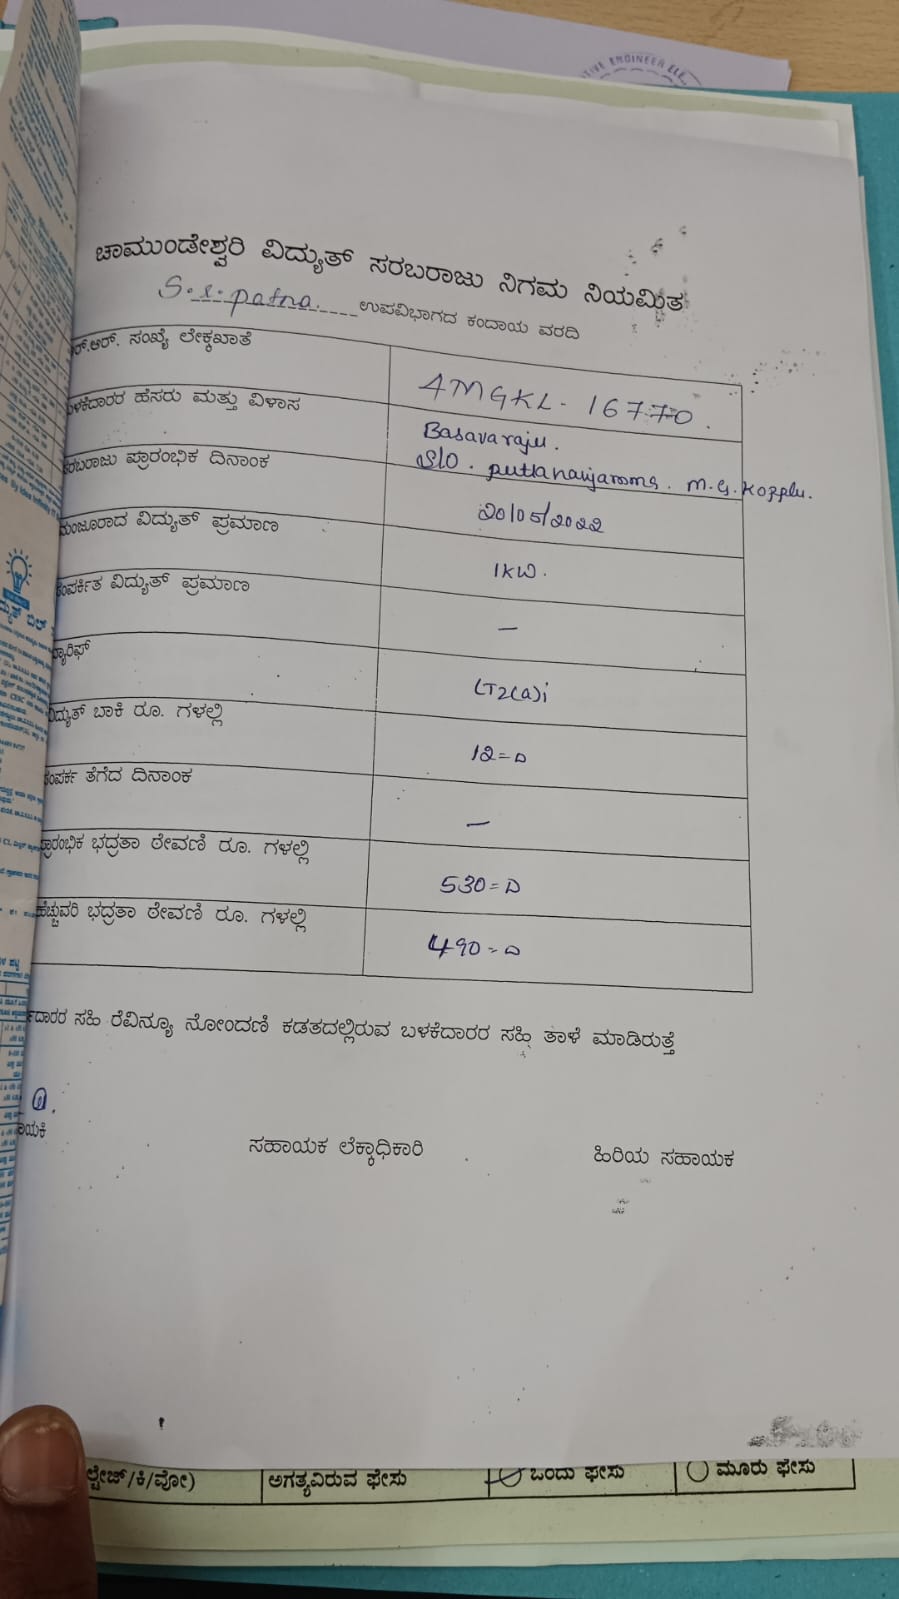 TIVE ENGINEER ELE
ಚಾಮುಂಡೇಶ್ವರಿ ವಿದ್ಯುತ್ ಸರಬರಾಜು ನಿಗಮ ನಿಯಮಿತ
ಉಪವಿಭಾಗದ ಕಂದಾಯ ವರದಿ
ರ್.ಆರ್. ಸಂಖ್ಯೆ ಲೇಕ್ಕಖಾತೆ
4MGKL - 16770.
ಬಳಕೆದಾರರ ಹೆಸರು ಮತ್ತು ವಿಳಾಸ
Basavaraju.
S/O. M.G. Kopplu.
ಸರಬರಾಜು ಪ್ರಾರಂಭಿಕ ದಿನಾಂಕ
20/05/2022
ಮಂಜೂರಾದ ವಿದ್ಯುತ್ ಪ್ರಮಾಣ
1KW.
ಸಂಪರ್ಕಿತ ವಿದ್ಯುತ್ ಪ್ರಮಾಣ
—
ಟ್ಯಾರಿಫ್
LT2(a)i
ವಿದ್ಯುತ್ ಬಾಕಿ ರೂ. ಗಳಲ್ಲಿ
12=0
ಸಂಪರ್ಕ ತೆಗೆದ ದಿನಾಂಕ
—
ಪ್ರಾರಂಭಿಕ ಭದ್ರತಾ ಠೇವಣಿ ರೂ. ಗಳಲ್ಲಿ
530=0
ಹೆಚ್ಚುವರಿ ಭದ್ರತಾ ಠೇವಣಿ ರೂ. ಗಳಲ್ಲಿ
490=0
ರ್ದಾರರ ಸಹಿ ರೆವಿನ್ಯೂ ನೋಂದಣಿ ಕಡತದಲ್ಲಿರುವ ಬಳಕೆದಾರರ ಸಹಿ ತಾಳೆ ಮಾಡಿರುತ್ತೆ
ಾಯಕಿ ಸಹಾಯಕ ಲೆಕ್ಕಾಧಿಕಾರಿ ಹಿರಿಯ ಸಹಾಯಕ
ಲ್ಟೇಜ್/ಕಿ/ವೋ) ಅಗತ್ಯವಿರುವ ಫೇಸು ಒಂದು ಫೇಸು ಮೂರು ಫೇಸು